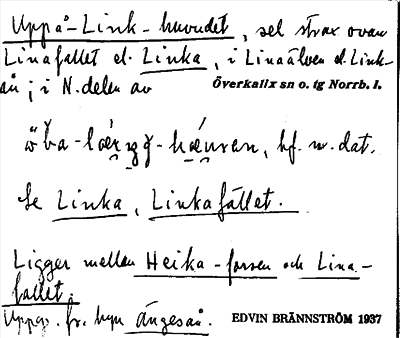 Uppå-Link-huvudet, sel strax ovan
Linafallet el. Linka, i Linaälven el. Link-
ån; i N. delen av Överkalix sn o. tg Norrb. l.
hf. m. dat.
Se Linka, Linkafallet.
Ligger mellan Heika-forsen och Lina-
fallet.
Uppg. fr. byn Ängeså. EDVIN BRÄNNSTRÖM 1937